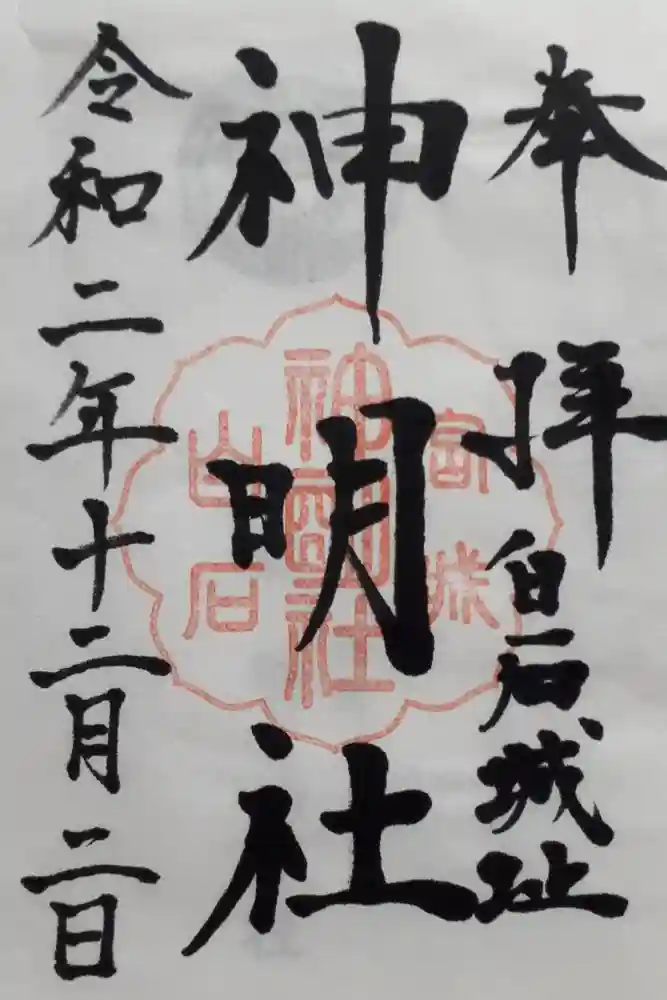 奉拝
白石城址
神明社
令和二年十二月二日
宮城
神明社
白石